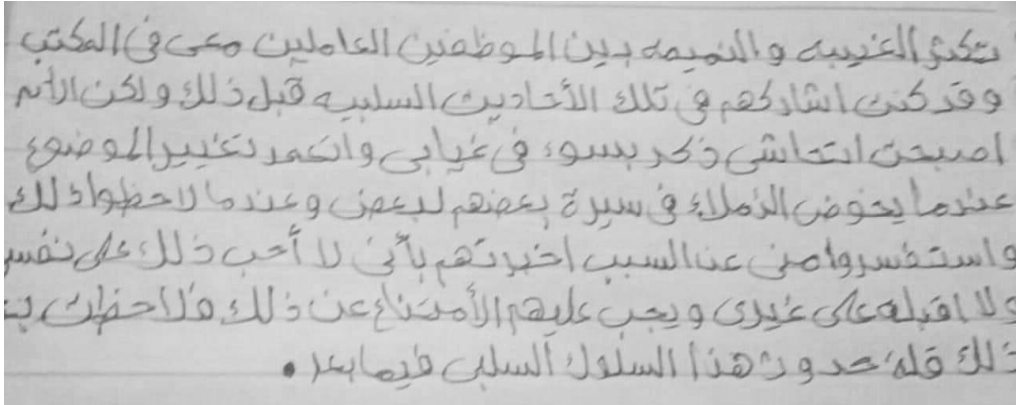 تكثر الغيبه والنميمه بين الموظفين العاملين معى فى المكتب
وقد كنت اشاركهم فى تلك الأحاديث السلبيه قبل ذلك ولكن الأن
اصبحت اتحاشى ذكر بسوء فى غيابى واتعمد تغيير الموضوع
عندما يخوض الزملاء فى سيرة بعضهم لبعض وعندما لاحظوا ذلك
واستفسروا منى عن السبب اخبرتهم بأنى لا أحب ذلك على نفس
ولا اقبله على غيرى ويجب عليهم الأمتناع عن ذلك فلاحظت بع
ذلك قلة حدوث هذا السلوك السلبى فيما بعد .